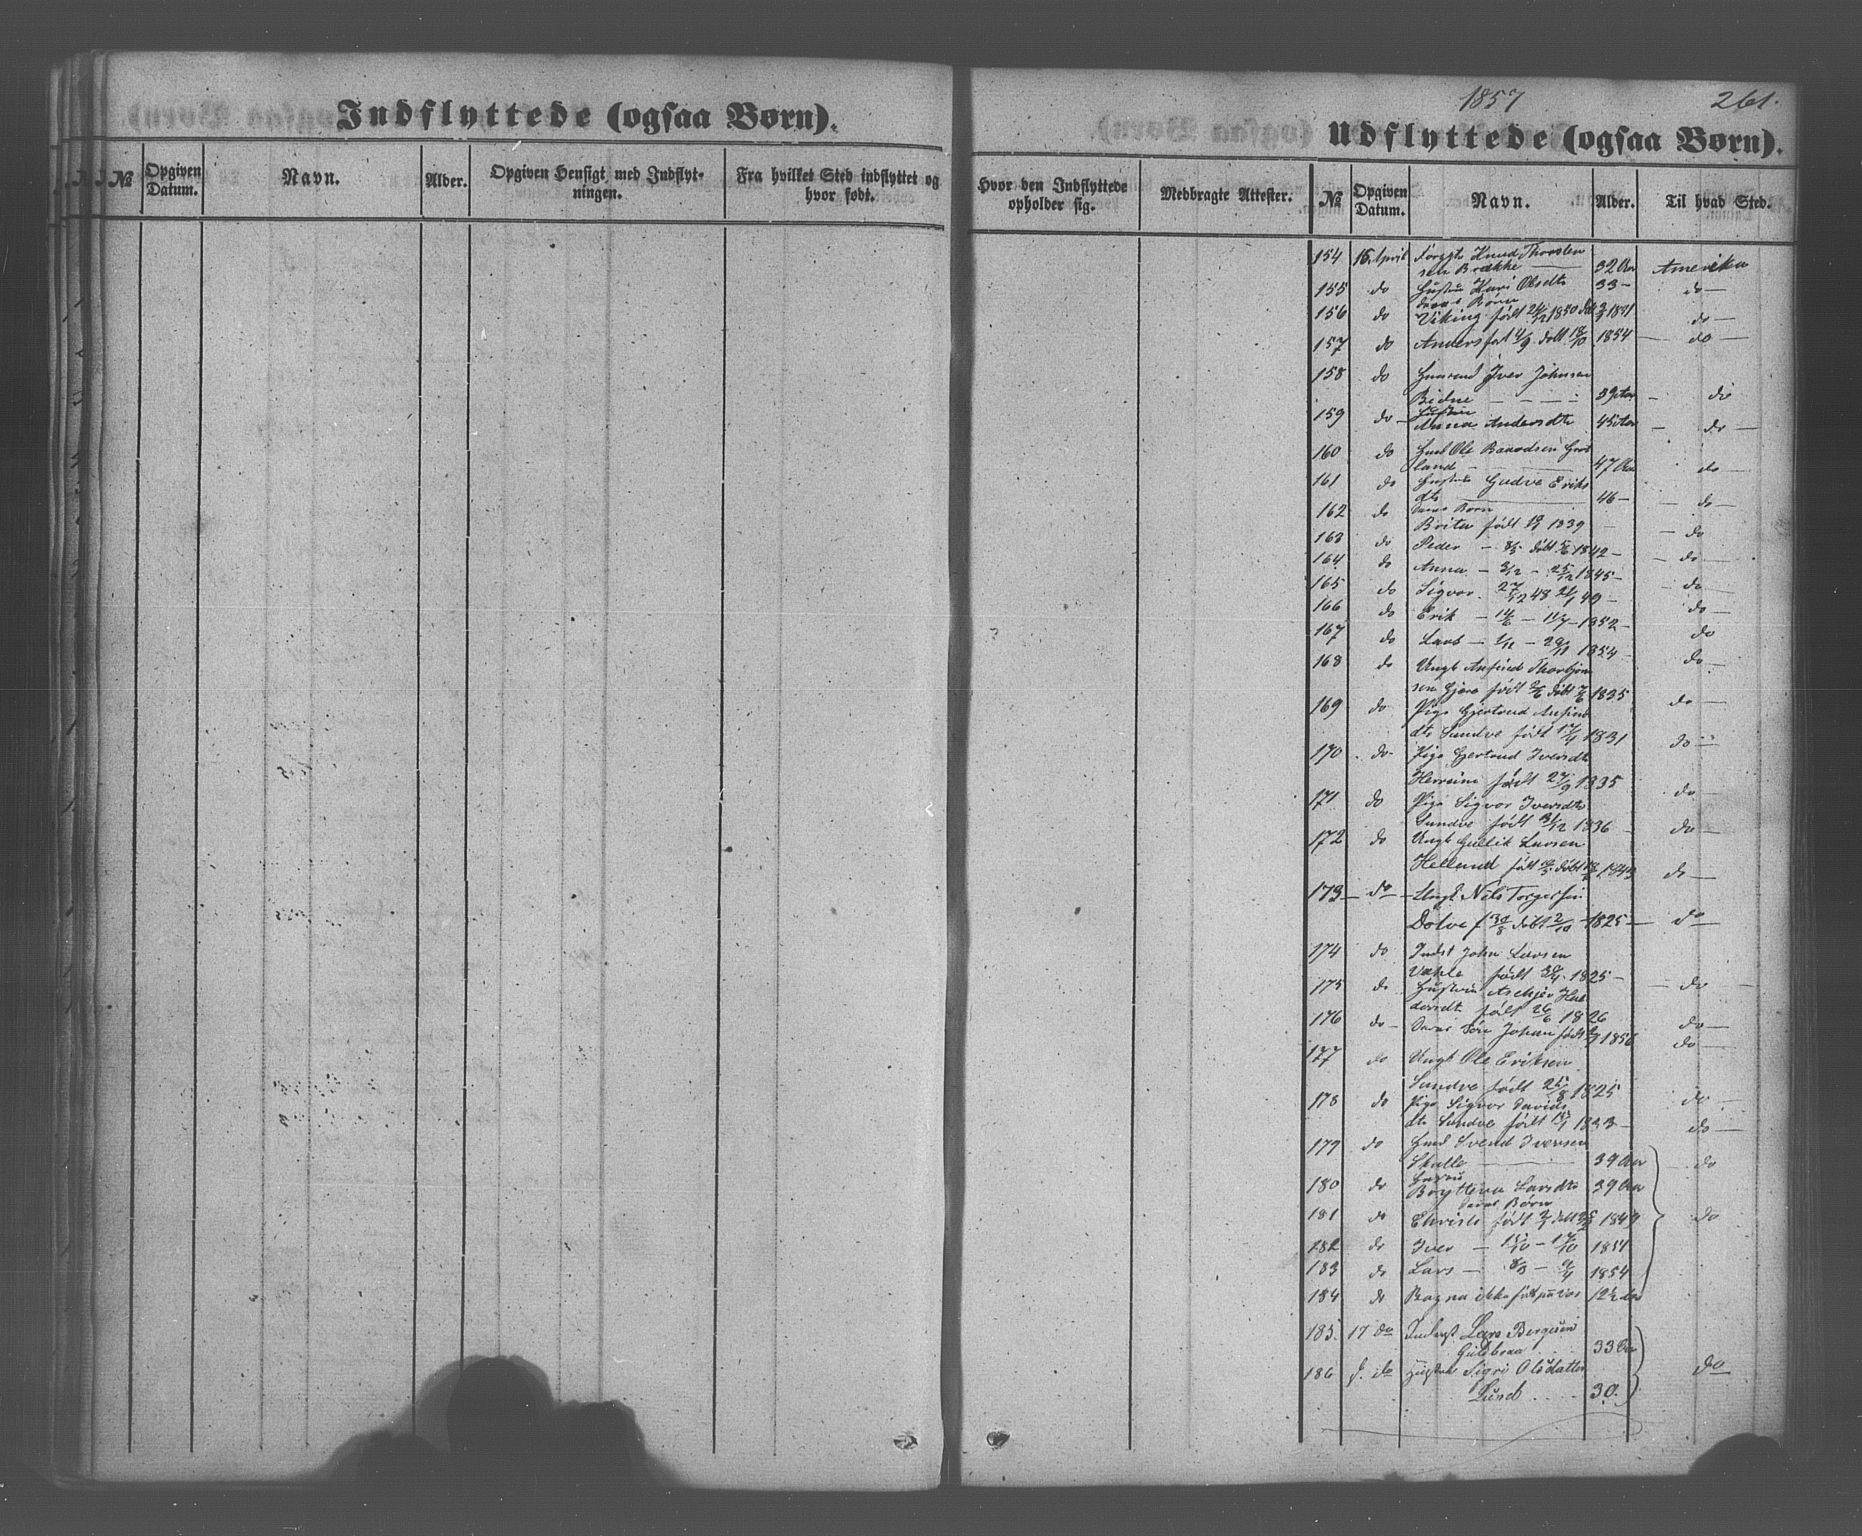 Indflyttede (ogsaa Børn).
No
Opgiven Datum.
Navn.
Alder.
Opgiven Hensigt med Indflytningen.
Fra hvilket Sted indflyttet og hvor født.
1857
261.
Udflyttede (ogsaa Børn).
Hvor den Indflyttede opholder sig.
Medbragte Attester.
No
Opgiven Datum.
Navn.
Alder.
Til hvad Sted.
154 15 April Knud Thorsten
sen Brække — 32 Aar Amerika
155 do Hustru Kari Olsdtr 33 — do —
deres Børn
156 do Viking født 1850 døbt 1851 do —
157 do Anders født 4/9 døbt 18/10 1854 — do —
158 do Huusmd Iver Johnsen
Bidne — — — 39 Aar — do
159 do — Hustru
Anna Andersdtr 45 Aar — do —
160 do Huusmd Ole
land — 47 Aar do —
161 do Hustru Gudve Eriks
dtr — 46 — — do —
162 do deres Børn
Brita født 1839 — — do
163 do Peder — døbt 1842 — — do —
164 do Anna — 3/12 — 25/12 1845 — — do —
165 do Sigvor 27/12 48 21/1 49 — do —
166 do Erik — — 1852 — do
167 do Lars — 1/11 — 1854 — do —
168 do Ungk Anfind Thorbjørn
sen født døbt 1835 do —
169 do Pige Gjertrud Anfinds
dtr Sundve født 1831 do —
170 do Pige Gjertrud Iversdtr
født 27/9 1835 do —
171 do Pige Sigvor Iversdtr
Sundve født 31/12 1836 — do —
172 do Ungk Gullik Larsen
Helland født døbt 1843 do —
173 — do — Ungk Nils Torgersen
Dolve f 30/8 døbt 2/10 1825 — do —
174 do Inderst John Larsen
født 1825 — — do —
175 do Hustru
født 26/6 1826 do —
176 do — deres Søn Johan født 1856 do —
177 do Ungk Ole Eriksen
Sundve født 25/8 1825 do —
178 do Pige Sigvor Davids
dtr Sundve født 1833 — do —
179 do Huusmd Svend Iversen
— 39 Aar — do
180 do Hustru
Brytteva Larsdtr 39 Aar
deres Børn
181 do Christi født døbt 1849 do
182 do Iver — 15/10 — 17/10 1851
183 do Lars — 8/3 — 9/4 1854
184 do Ragna ikke født paa Vos 12½ Aar
185. 17 do Inderst Lars Bergesen
— 33 Aar
186 d. do Hustru Sigri Olsdatter do
30.